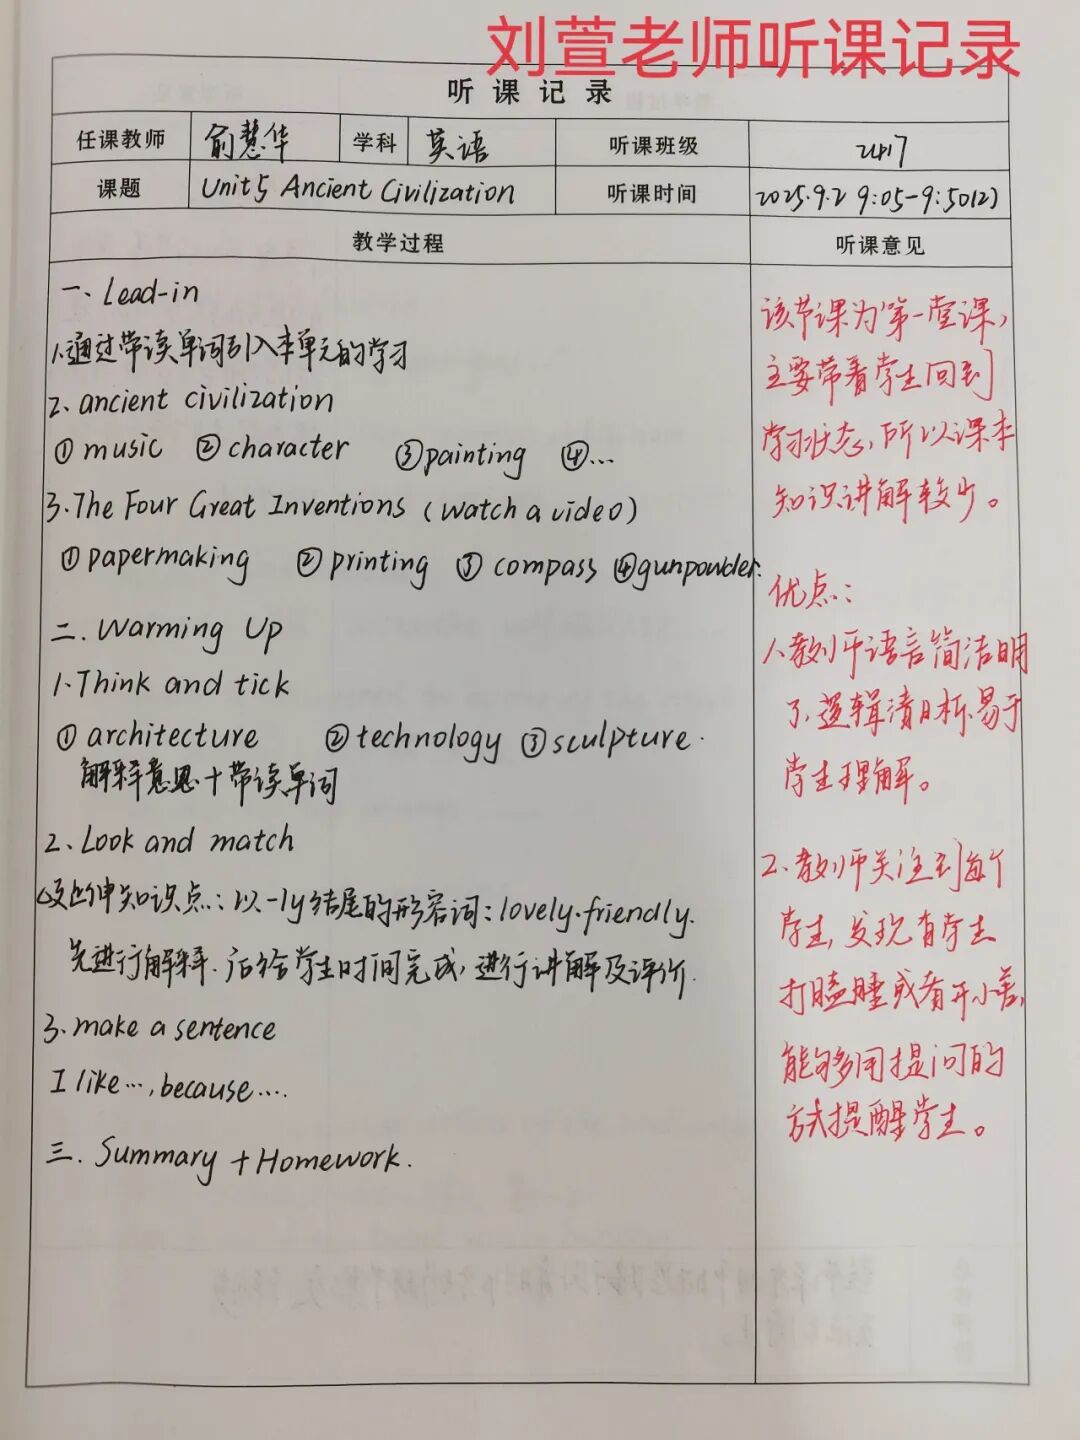 刘萱老师听课记录
听课记录
任课教师 俞慧华 学科 英语 听课班级 2417
课题 Unit5 Ancient Civilization 听课时间 2025.9.2 9:05-9:50(2)
教学过程 听课意见
一、Lead-in
1.通过带读单词引入本单元的学习
2. ancient civilization
① music ② character ③ painting ④...
3.The Four Great Inventions (watch a video)
① papermaking ② printing ③ compass ④gunpowder.
二. Warming Up
1.Think and tick
① architecture ② technology ③ sculpture.
解释意思+带读单词
2. Look and match
延伸知识点:以-ly结尾的形容词:lovely.friendly.
先进行解释.后给学生时间完成,进行讲解及评价.
3. make a sentence
I like…, because….
三. Summary + Homework.
该节课为第一堂课,
主要带着学生回到
学习状态,所以课本
知识讲解较少。
优点:
1.教师语言简洁明
了,逻辑清晰,易于
学生理解。
2.教师关注到每个
学生,发现有学生
打瞌睡或者开小差,
能够用提问的
方式提醒学生。